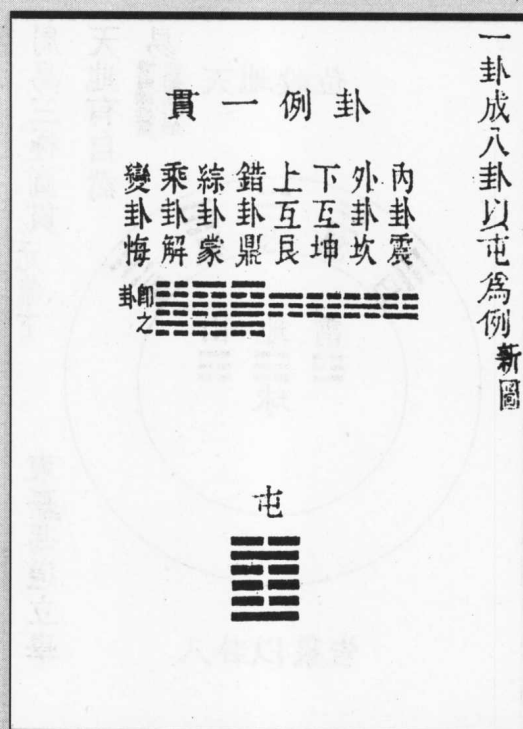 一卦成八卦以屯爲例新圖
卦例一貫
內卦震
外卦坎
下互坤
上互艮
錯卦鼎
綜卦蒙
乘卦解
變卦悔
卽之卦
屯